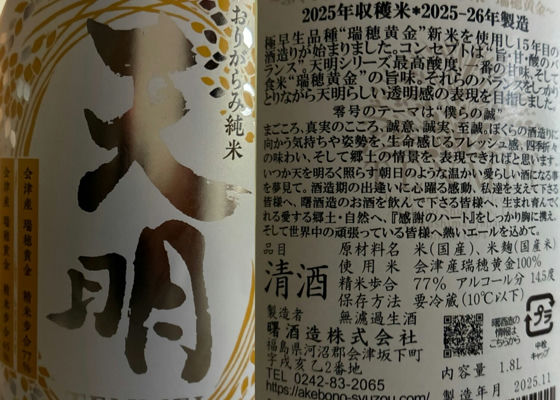 おりがらみ純米
天明
会津産 瑞穂黄金 精米歩合77%
2025年収穫米*2025-26年製造
極早生品種“瑞穂黄金”新米を使用し15年目の
酒造りが始まりました。コンセプトは“旨・甘・酸のバ
ランス。”天明シリーズ最高酸度、一番の甘味、そして
食米“瑞穂黄金”の旨味。それらのバランスをしっかり
とりながら天明らしい透明感の表現を目指しました。
零号のテーマは“僕らの誠”
まごころ、真実のこころ、誠意、誠実、至誠。ぼくらの酒造りに
向かう気持ちや姿勢を、生命感じるフレッシュ感、四季折々
の味わい、そして郷土の情景を、表現できればと思います。
いつか天を明るく照らす朝日のような温かい愛らしい酒になる事
を夢見て。酒造期の出逢いに心躍る感動、私達を支えて下さる
皆様へ、曙酒造のお酒を飲んで下さる皆様へ、生まれ育んでく
れる愛する郷土・自然へ、『感謝のハート』をしっかり胸に携え、
そして世界中の頑張っている皆様へ熱いエールを込めて。
品目
清酒
原材料名 米(国産)、米麹(国産米)
使用米 会津産瑞穂黄金100%
精米歩合 77% アルコール分 14.5度
保存方法 要冷蔵(10℃以下)
無濾過生酒
製造者
曙酒造株式会社
福島県河沼郡会津坂下町
字戌亥乙2番地
TEL 0242-83-2065
https://akebono-syuzou.com/
曙酒造の
情報は
こちらから
プラ
中栓
キャップ
内容量 1.8L
製造年月 2025.11